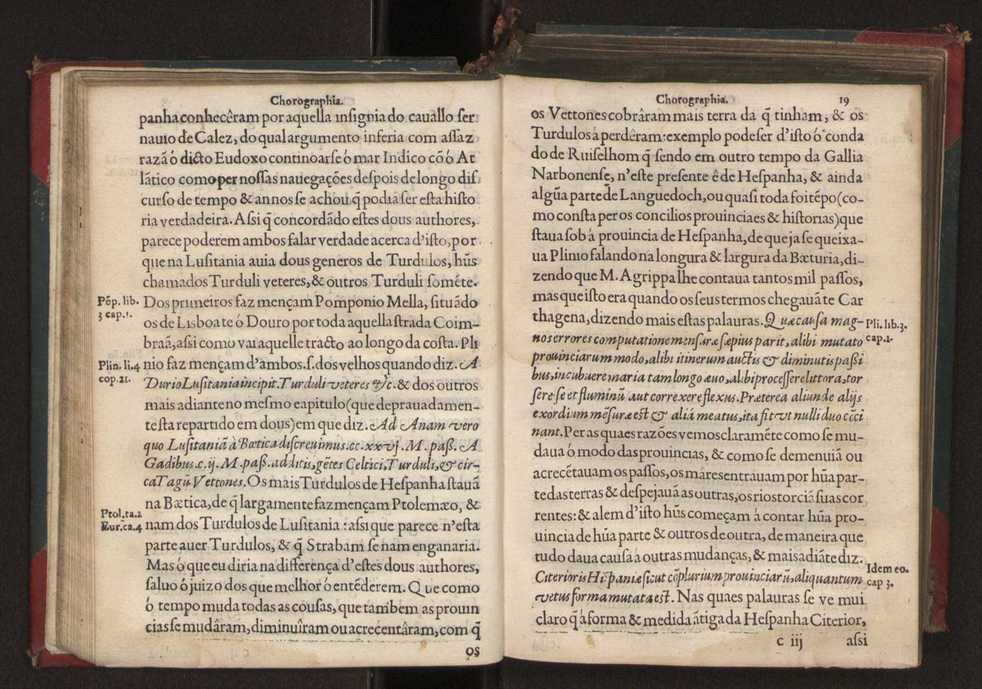 Chorographia.
panha conhecêram por aquella insignia do cauallo ser
nauio de Calez, do qual argumento inferia com assaz
razã ó dicto Eudoxo continoarse ó mar Indico cõ ó At
lãtico como per nossas nauegações despois de longo dis
curso de tempo & annos se achou q̃ podia ser esta histo
ria verdadeira. Assi q̃ concordãdo estes dous authores,
parece poderem ambos falar verdade acerca d'isto, por
que na Lusitania auia dous generos de Turdulos, hũs
chamados Turduli veteres, & outros Turduli sométe.
Põp. lib. 3 cap. 1.
Dos primeiros faz mençam Pomponio Mella, situãdo
os de Lisboa te ó Douro por toda aquella strada Coim-
braã, assi como vai aquelle tracto ao longo da costa. Pli
Plin. li. 4 cop. 21.
nio faz mençam d'ambos. s. dos velhos quando diz. A
Durio Lusitania incipit. Turduli veteres &c. & dos outros
mais adiante no mesmo capitulo (que deprauadamen-
te sta repartido em dous) em que diz. Ad Anam vero
quo Lusitaniã à Bætica discreuimus. cc. xxvj. M. paß. A
Gadibus c. ij. M. paß. additis, gẽtes Celtici, Turduli, & cir-
ca Tagũ Vettones. Os mais Turdulos de Hespanha stauã
na Bætica, de q̃ largamente faz mençam Ptolemæo, &
Ptol. ta. 2 Eur. ca. 4
nam dos Turdulos de Lusitania: assi que parece n'esta
parte auer Turdulos, & q̃ Strabam se nam enganaria.
Mas ó que eu diria na differença d'estes dous authores,
saluo ó juizo dos que melhor ó entẽderem. Que como
ó tempo muda todas as cousas, que tambem as prouin
cias se mudâram, diminuîram ou acrecentâram, com q̃
os
Chorographia. 19
os Vettones cobrâram mais terra da q̃ tinham, & os
Turdulos à perdêram: exemplo pode ser d'isto ó conda
do de Ruiselhom q̃ sendo em outro tempo da Gallia
Narbonense, n'este presente ê de Hespanha, & ainda
algũa parte de Languedoch, ou quasi toda foi tẽpo (co-
mo consta per os concilios prouinciaes & historias) que
staua sob à prouincia de Hespanha, de que ja se queixa-
ua Plinio falando na longura & largura da Bæturia, di-
zendo que M. Agrippa lhe contaua tantos mil passos,
mas que isto era quando os seus termos chegauã te Car
thagena, dizendo mais estas palauras. Quæ causa mag-
Pli. lib. 3. cap. 1.
nos errores computatione mensuræ sæpius parit, alibi mutato
prouinciarum modo, alibi itinerum auctis & diminutis paßi
bus, incubuere maria tam longo æuo, alibi processere littora, tor
sere se et fluminũ aut correxere flexus. Præterea aliunde alijs
exordium mẽsuræ est & aliâ meatus, ita fit vt nulli duo cõci
nant. Per as quaes razões vemos claramẽte como se mu-
daua ó modo das prouincias, & como se demenuiã ou
acrecẽtauam os passos, os máres entrauam por hũa par-
te das terras & despejauã as outras, os rios torciã suas cor
rentes: & alem d'isto hũs começam á contar hũa pro-
uincia de hũa parte & outros de outra, de maneira que
tudo daua causa à outras mudanças, & mais adiãte diz.
Idem eo. cap 3.
Citerioris Hispaniæ sicut cõplurium prouinciarũ, aliquantum
vetus forma mutata est. Nas quaes palauras se ve mui
claro q̃ à forma & medida ãtiga da Hespanha Citerior,
c iij assi